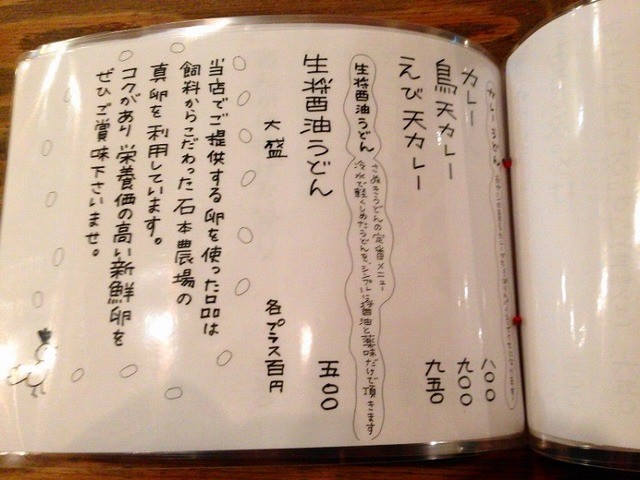 カレーうどん
カレー 八〇〇
鳥天カレー 九〇〇
えび天カレー 九五〇
生醤油うどん
さぬきうどんの定番メニュー
冷水で軽くしめたうどんを、シンプルに醤油と薬味だけで頂きます
生醤油うどん 五〇〇
大盛 各プラス百円
当店でご提供する卵を使った品は
飼料からこだわった石本農場の
真卵を利用しています。
コクがあり栄養価の高い新鮮卵を
ぜひご賞味下さいませ。